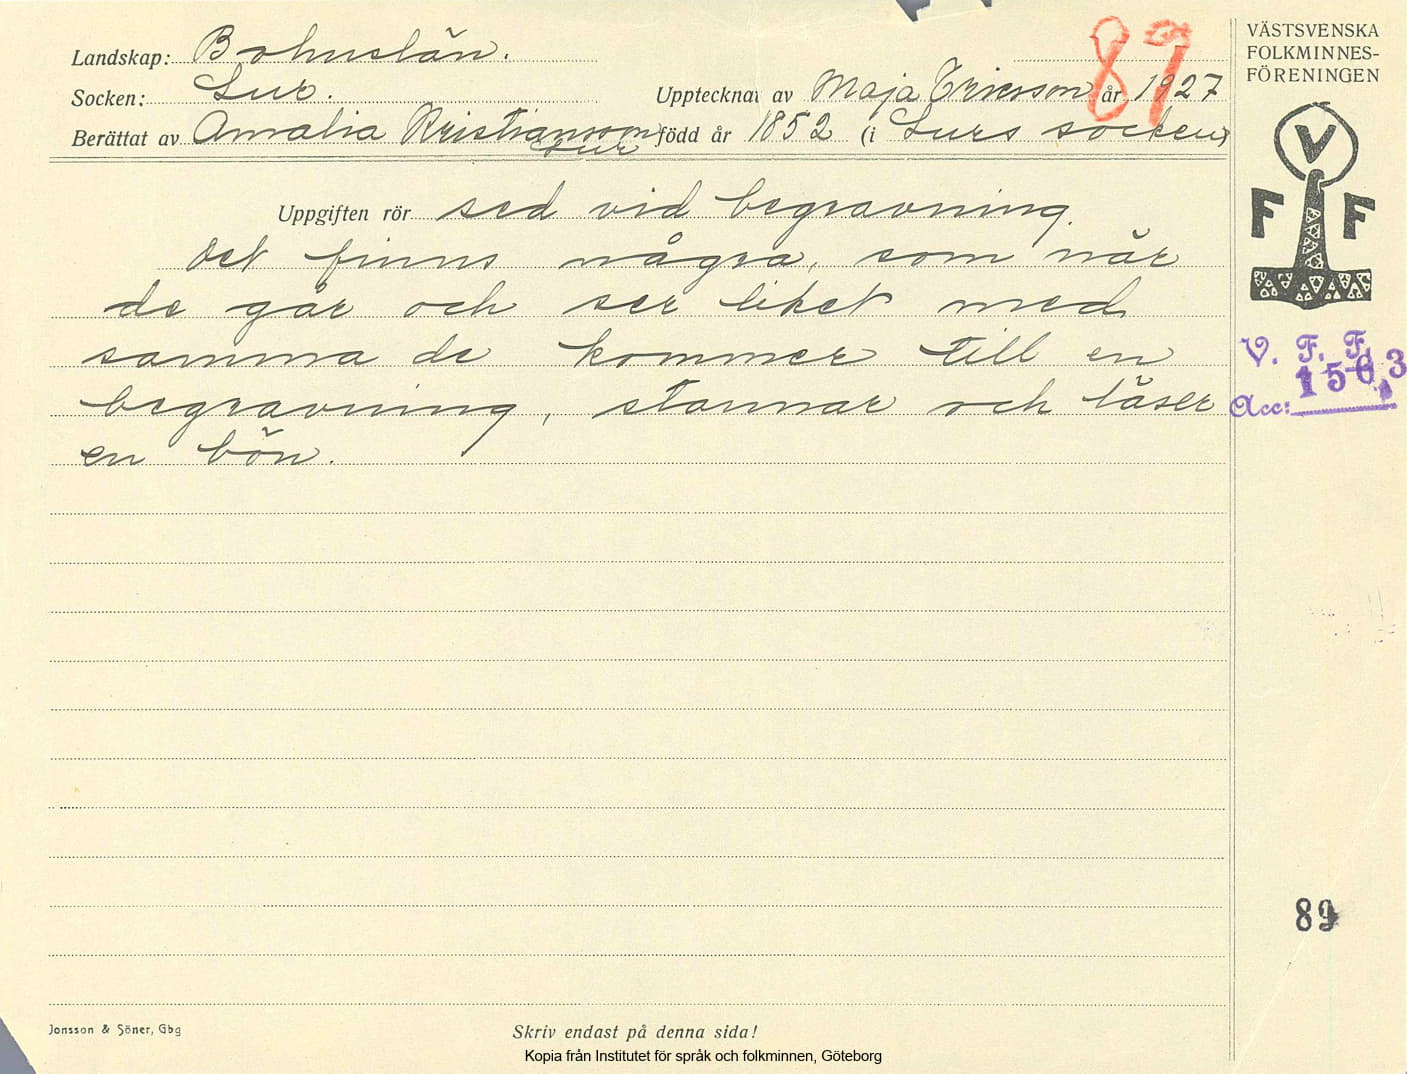 Landskap: Bohuslän.
Socken: Lur.
Upptecknat av Maja Ericsson år 1927
Berättat av Amalia Kristiansson, Lur född år 1852 (i Lurs socken)
89
Uppgiften rör sed vid begravning.
Det finns några, som när
de går och ser liket med
samma de kommer till en
begravning, stannar och läser
en bön.
VÄSTSVENSKA
FOLKMINNES-
FÖRENINGEN
V
F F
V. F. F.
Acc: 1563
89
Jonsson & Söner, Gbg
Skriv endast på denna sida!
Kopia från Institutet för språk och folkminnen, Göteborg